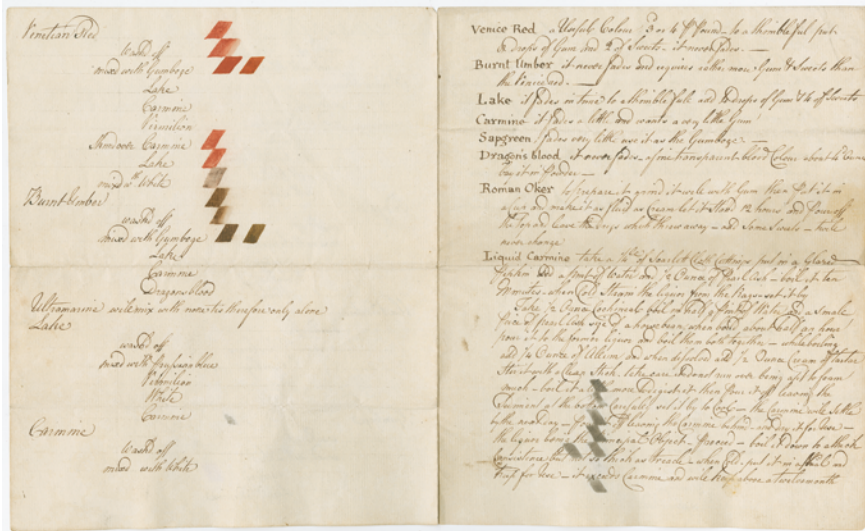 Venetian Red
washd off
mixed with Gamboge
Lake
Carmine
Vermilion
Carmine
Lake
mixd wth White
Burnt Umber
washd off
mixed with Gamboge
Lake
Carmine
Dragons blood
Ultramarine will mix with none tis therefore only alone
Lake
washd off
mixed with Prussian blue
Vermilion
White
Carmine
Carmine
Washd off
mixed with White
Venice Red a Useful Colour 3 or 4 pr pound - to a thimble full put
drops of Gum and 2 of Sweets - it never fades. -
Burnt Umber it never fades and requires rather more Gum & Sweets than
the Venice red. -
Lake it fades in time to a thimble full add drops of Gum & 4 of Sweets
Carmine it fades a little and wants a very little Gum
Sapgreen fades very little use it as the Gumboge. -
Dragon's blood it never fades - a fine transparent blood Colour about
buy it in Powder -
Roman Oker to prepare it grind it well with Gum then put it in
a Cup and make it as fluid as Cream let it Stand 12 hours and pour off
the Top and leave the Dregs which throw away - add Some Sweets - twill
never change
Liquid Carmine take a of Scarlet Cloth Cuttings put in a Glazed
Pipkin add a pint of Water and 1/2 Ounce of Pearl ash - boil it ten
Minutes - when Cold Strain the liquor from the Rags - set it by
Take 1/2 Ounce Cochineal boil in half a pint of Water and a Small
piece of pearl ash size of a horse bean, when boild about half an hour
pour it to the former liquor and boil them both together - while boiling
add 1/4 Ounce of Allum and when disolved add 1/2 Ounce Cream of tartar
Stir it with a Clean Stick, take care it does not run over being apt to foam
much - boil it a little more to digest it then pour it off leaving the
Sediment at the bottom Carefully set it by to Cool - the Carmine will Settle
by the next day - pour off leaving the Carmine behind - and dry it for Use -
the liquor being the Object - proceed - boil it down to a thick
Consistence but not so thick as treacle - when Cold put it in a phial and
Stop for Use - it exceeds Carmine and will keep above a twelvemonth